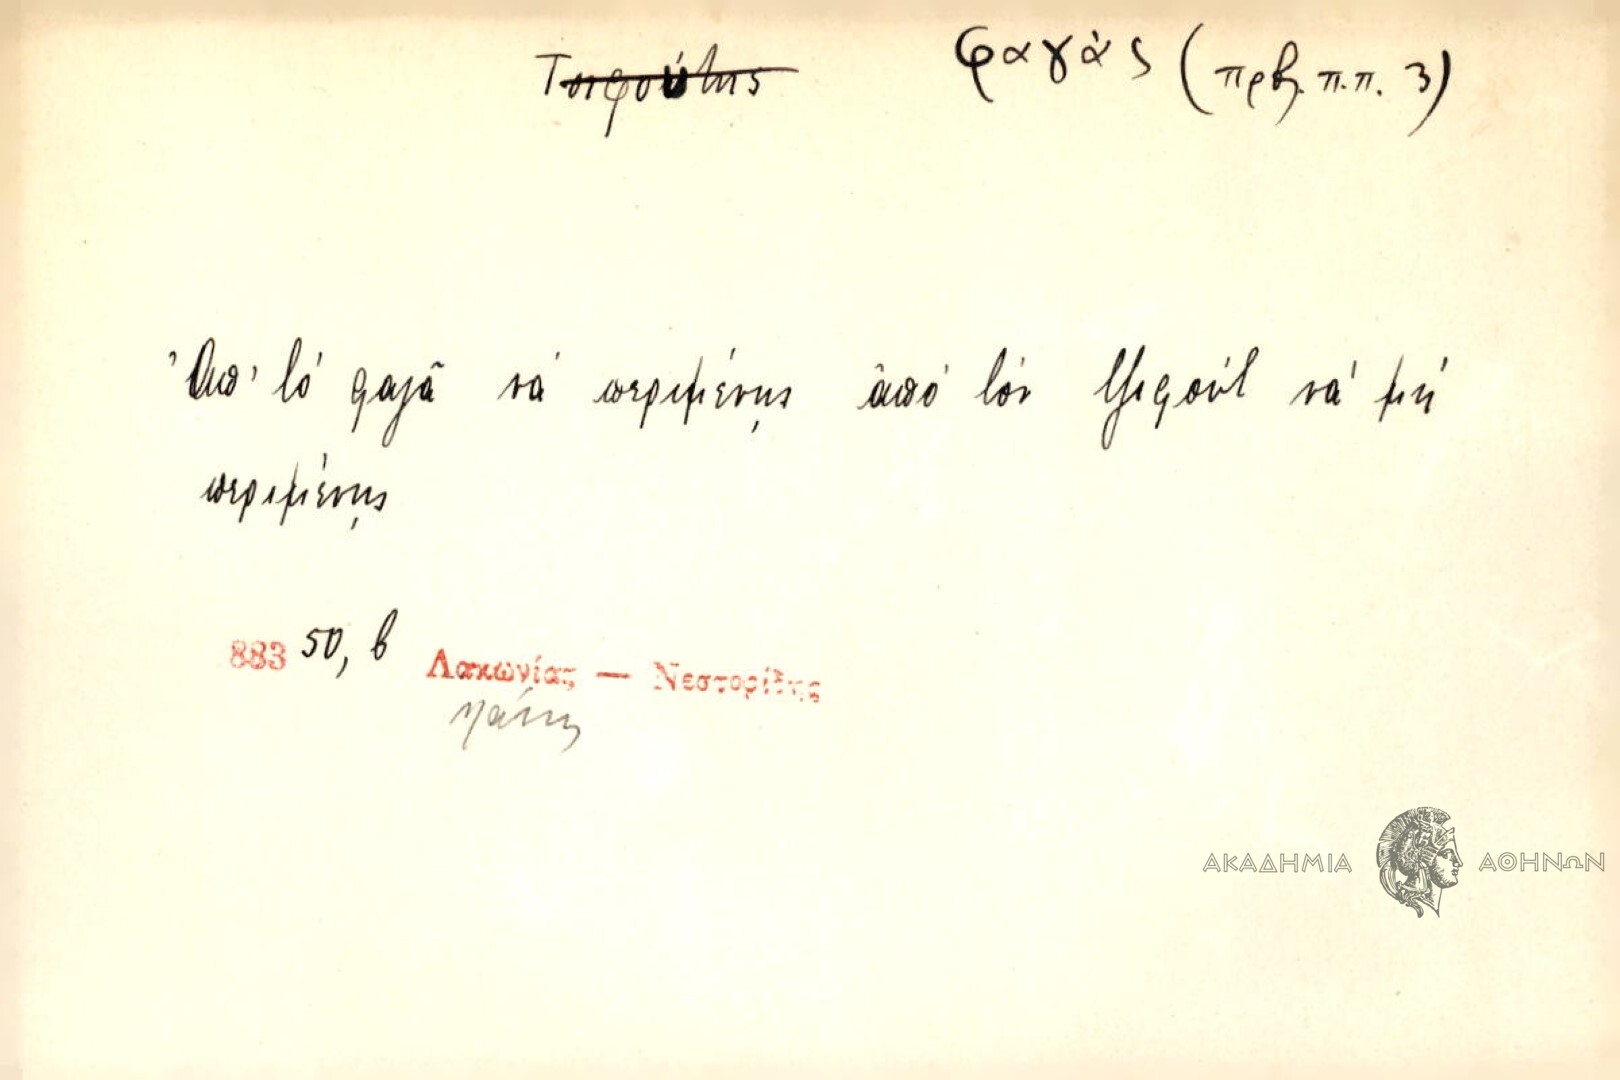 Τσιφούτης φαγάς (πρβ. π.π. 3)
Ἀπ' τὸ φαγᾶ νὰ περιμένῃς ἀπὸ τὸν τζιφοὺτ νὰ μὴ
περιμένῃς
883 50, β Λακωνίας — Νεστορίδης
ΑΚΑΔΗΜΙΑ ΑΘΗΝΩΝ